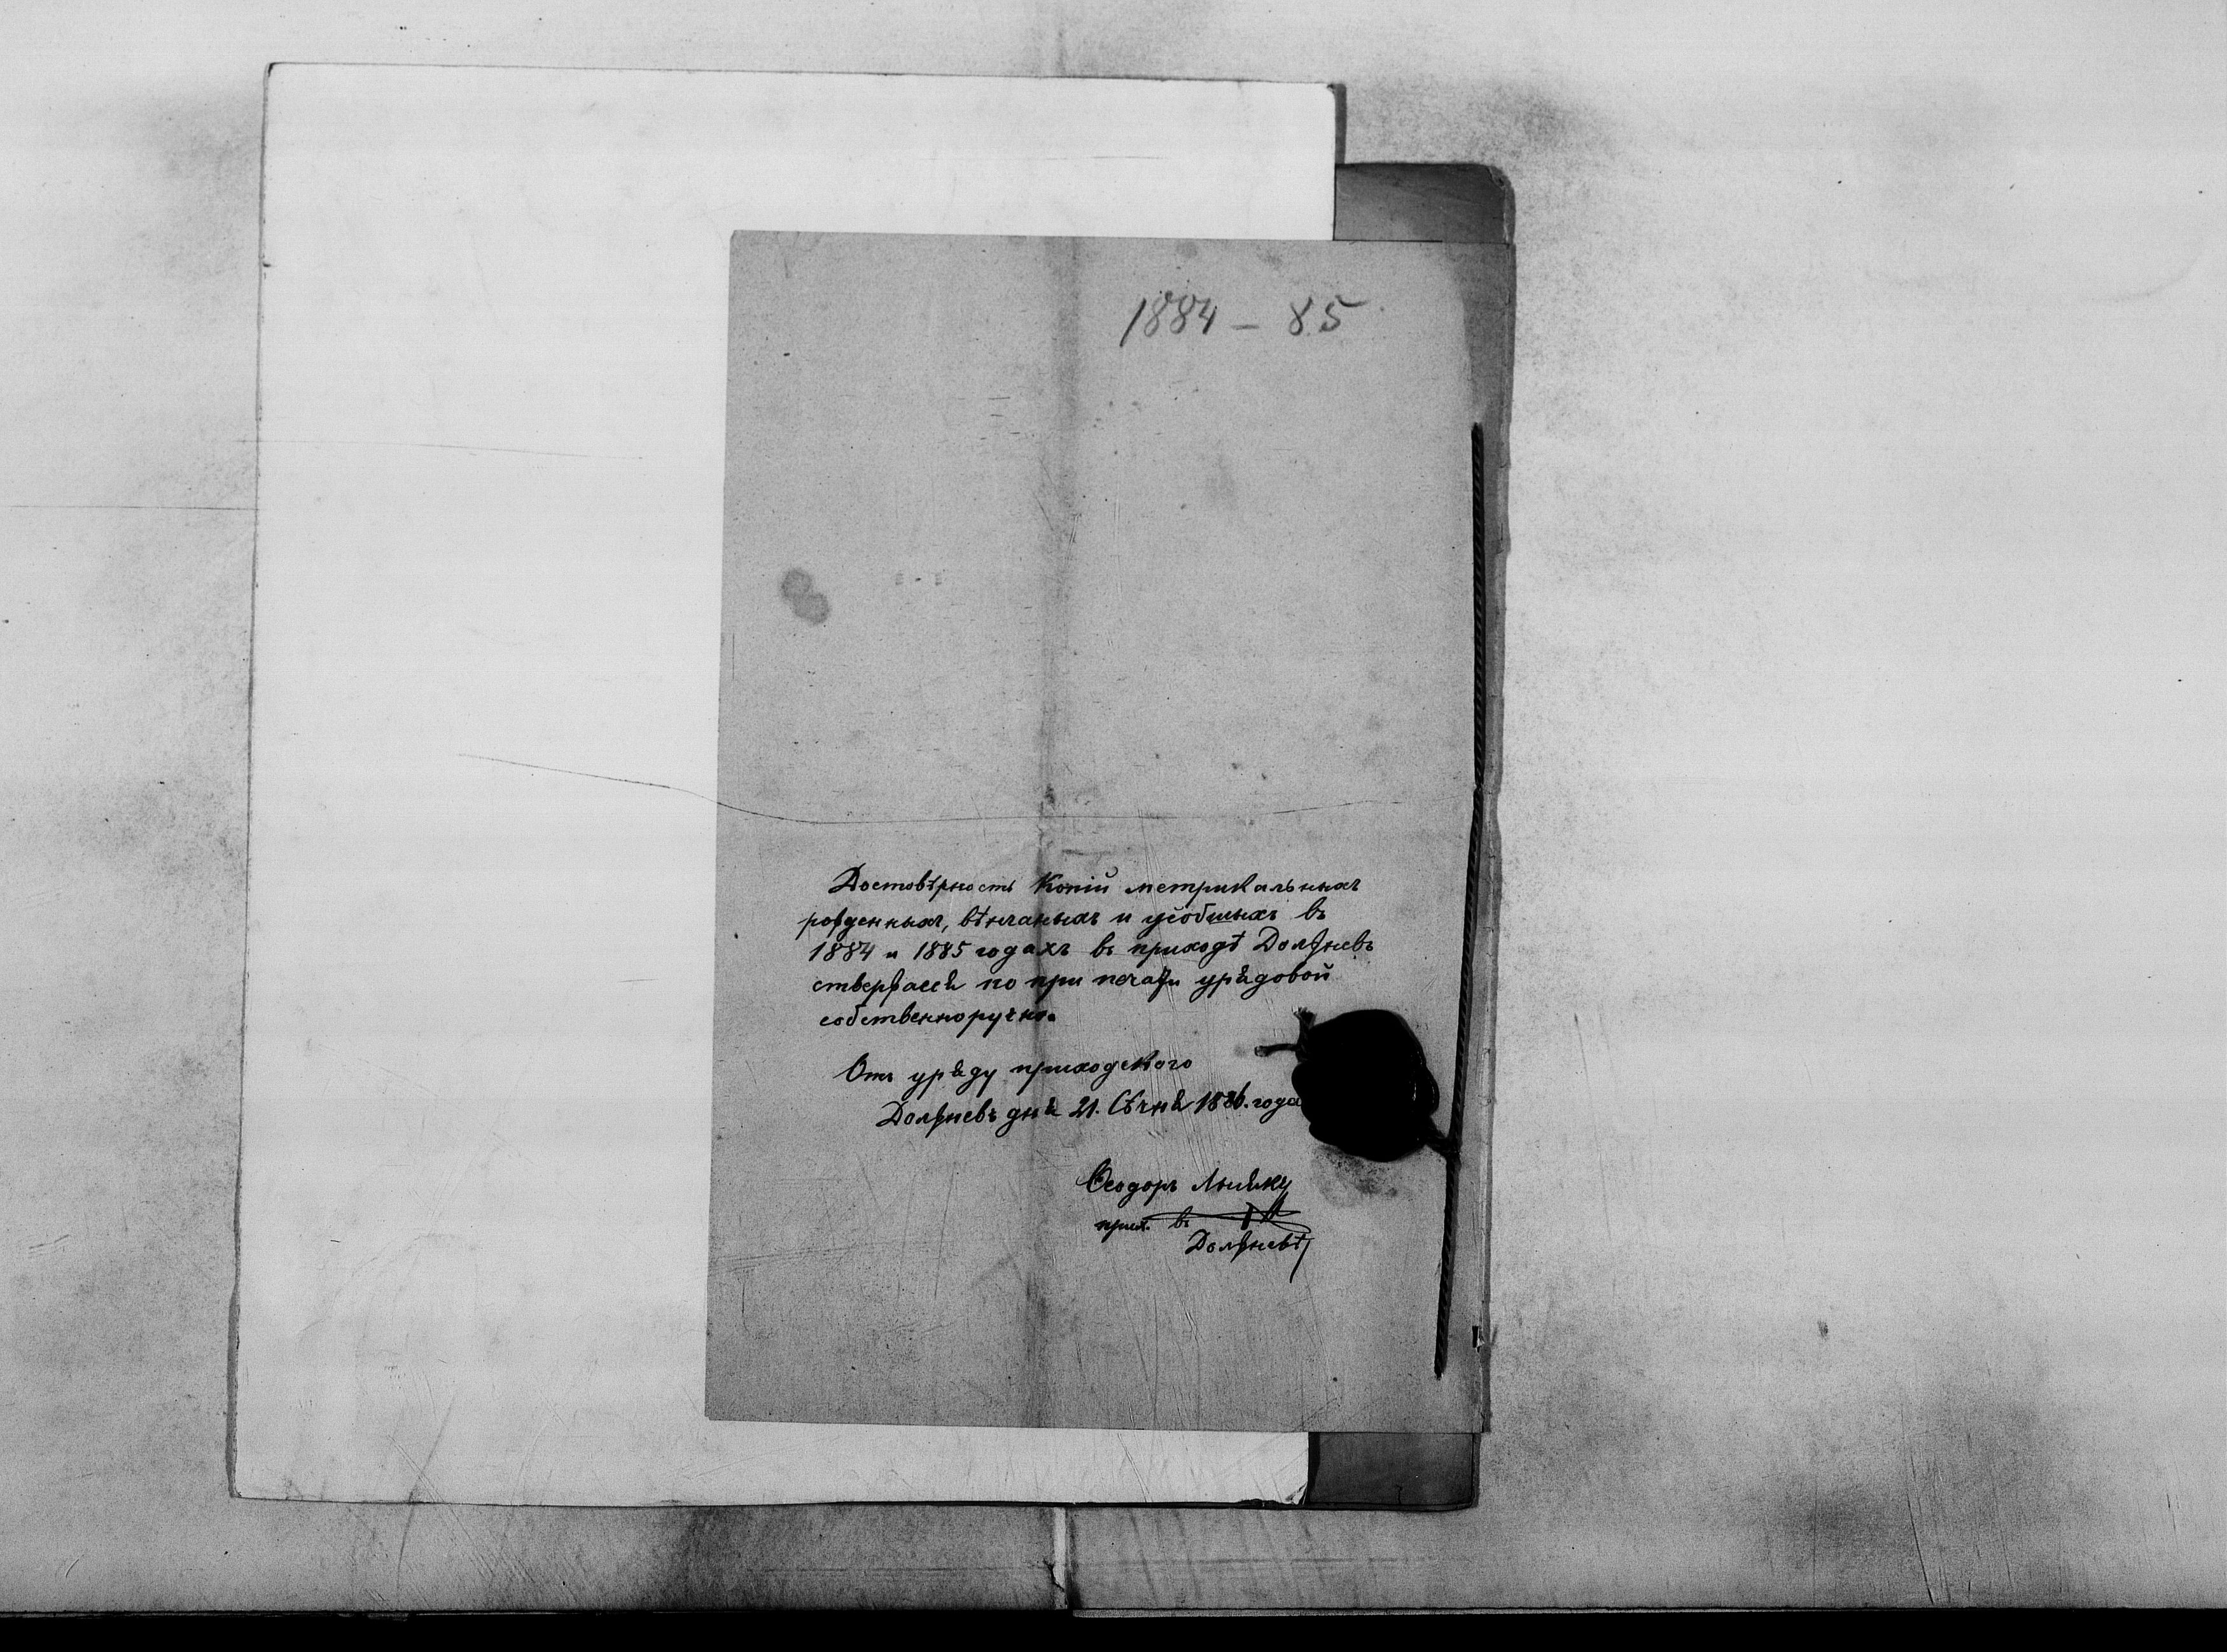 1884 – 85
Достовѣрность копій метрикальныхъ
рожденныхъ, вѣнчаныхъ и усобшихъ въ
1884 и 1885 годахъ въ приходѣ Должневъ
ствержаєся по при печати урядовой
собственноручно.
Отъ уряду приходского
Должневъ дня 21. Сѣчня 1886. года
Ѳеодоръ
прих. въ
Должневѣ